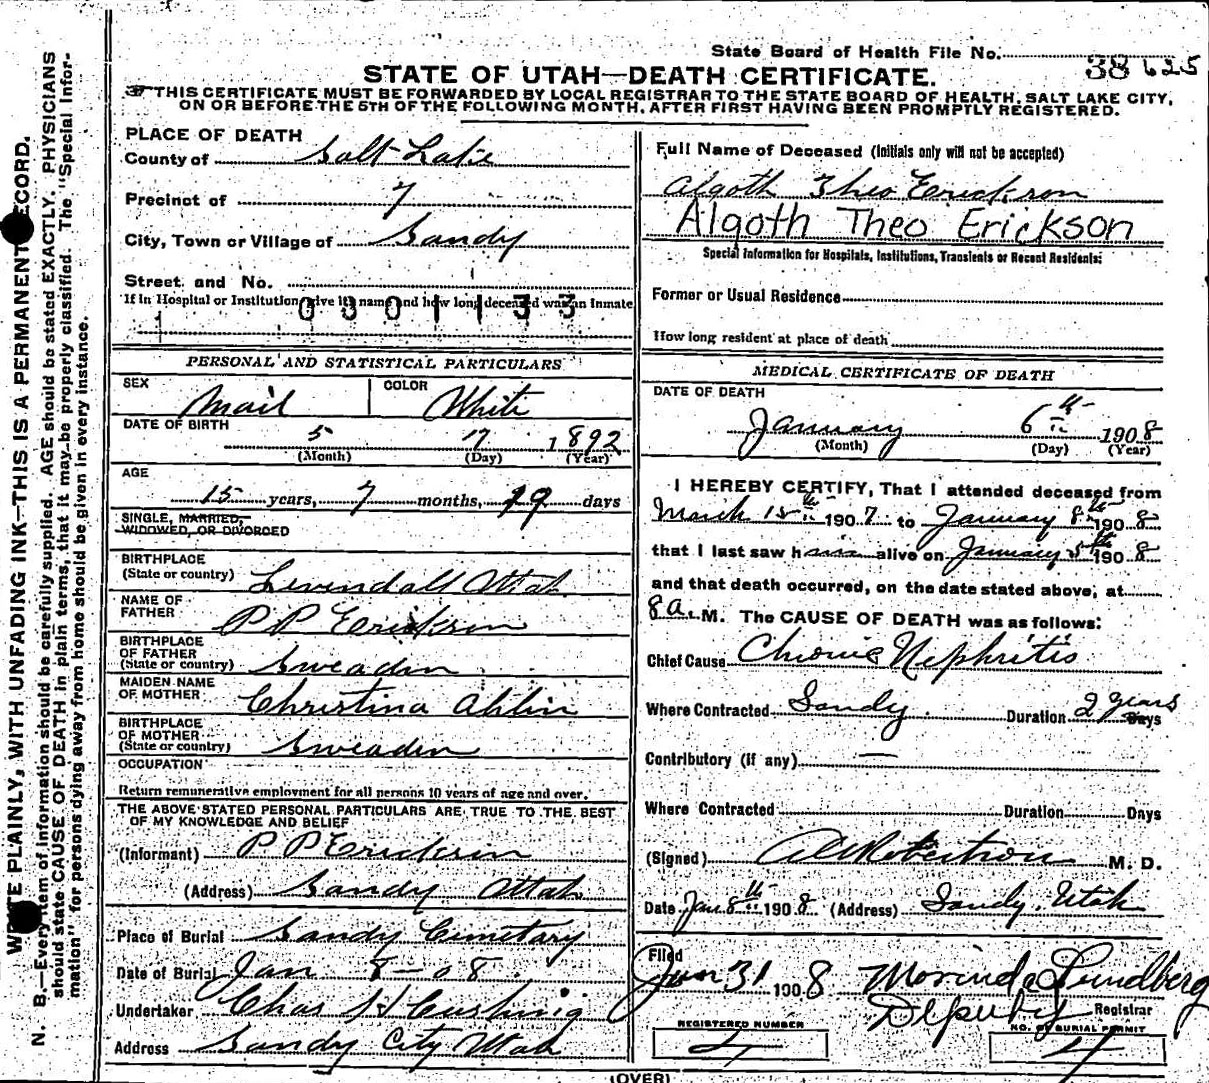 State Board of Health File No. 38625
STATE OF UTAH—DEATH CERTIFICATE.
THIS CERTIFICATE MUST BE FORWARDED BY LOCAL REGISTRAR TO THE STATE BOARD OF HEALTH, SALT LAKE CITY,
ON OR BEFORE THE 5TH OF THE FOLLOWING MONTH, AFTER FIRST HAVING BEEN PROMPTLY REGISTERED.
WRITE PLAINLY, WITH UNFADING INK—THIS IS A PERMANENT RECORD.
N. B.—Every item of information should be carefully supplied. AGE should be stated EXACTLY. PHYSICIANS
should state CAUSE OF DEATH in plain terms, that it may be properly classified. The "Special Infor-
mation" for persons dying away from home should be given in every instance.
PLACE OF DEATH
County of Salt Lake
Precinct of 7
City, Town or Village of Sandy
Street and No.
If in Hospital or Institution give its name and how long deceased was an inmate
0301133
PERSONAL AND STATISTICAL PARTICULARS
SEX COLOR
Mail White
DATE OF BIRTH
5 17 1892
(Month) (Day) (Year)
AGE
15 years, 7 months, 19 days
SINGLE, MARRIED,
WIDOWED, OR DIVORCED
BIRTHPLACE
(State or country) Levendall Utah
NAME OF
FATHER P P Erickson
BIRTHPLACE
OF FATHER
(State or country) Sweadin
MAIDEN NAME
OF MOTHER Christina Ahlin
BIRTHPLACE
OF MOTHER
(State or country) Sweadin
OCCUPATION
Return remunerative employment for all persons 10 years of age and over.
THE ABOVE STATED PERSONAL PARTICULARS ARE TRUE TO THE BEST
OF MY KNOWLEDGE AND BELIEF
(Informant) P P Erickson
(Address) Sandy Utah
Place of Burial Sandy Cemetary
Date of Burial Jan 8-08
Undertaker Chas H Cushing
Address Sandy City Utah
Full Name of Deceased (Initials only will not be accepted)
Algoth Theo Erickson
Algoth Theo Erickson
Special Information for Hospitals, Institutions, Transients or Recent Residents:
Former or Usual Residence
How long resident at place of death
MEDICAL CERTIFICATE OF DEATH
DATE OF DEATH
January 6th 1908
(Month) (Day) (Year)
I HEREBY CERTIFY, That I attended deceased from
March 15th 1907 to January 8th 1908
that I last saw him alive on January 5th 1908
and that death occurred, on the date stated above, at
8 a. M. The CAUSE OF DEATH was as follows:
Chief Cause Chronic Nephritis
Where Contracted Sandy. Duration 2 years Days
Contributory (if any) —
Where Contracted Duration Days
(Signed) Robertson M. D.
Date Jan 8th 1908 (Address) Sandy, Utah
Filed
Jan 31 1908 Morinda Lundberg
Deputy Registrar
REGISTERED NUMBER NO. OF BURIAL PERMIT
4 4
(OVER)